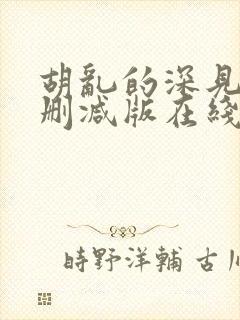 胡亂的深見
刪減版在綫
時野洋輔 古川